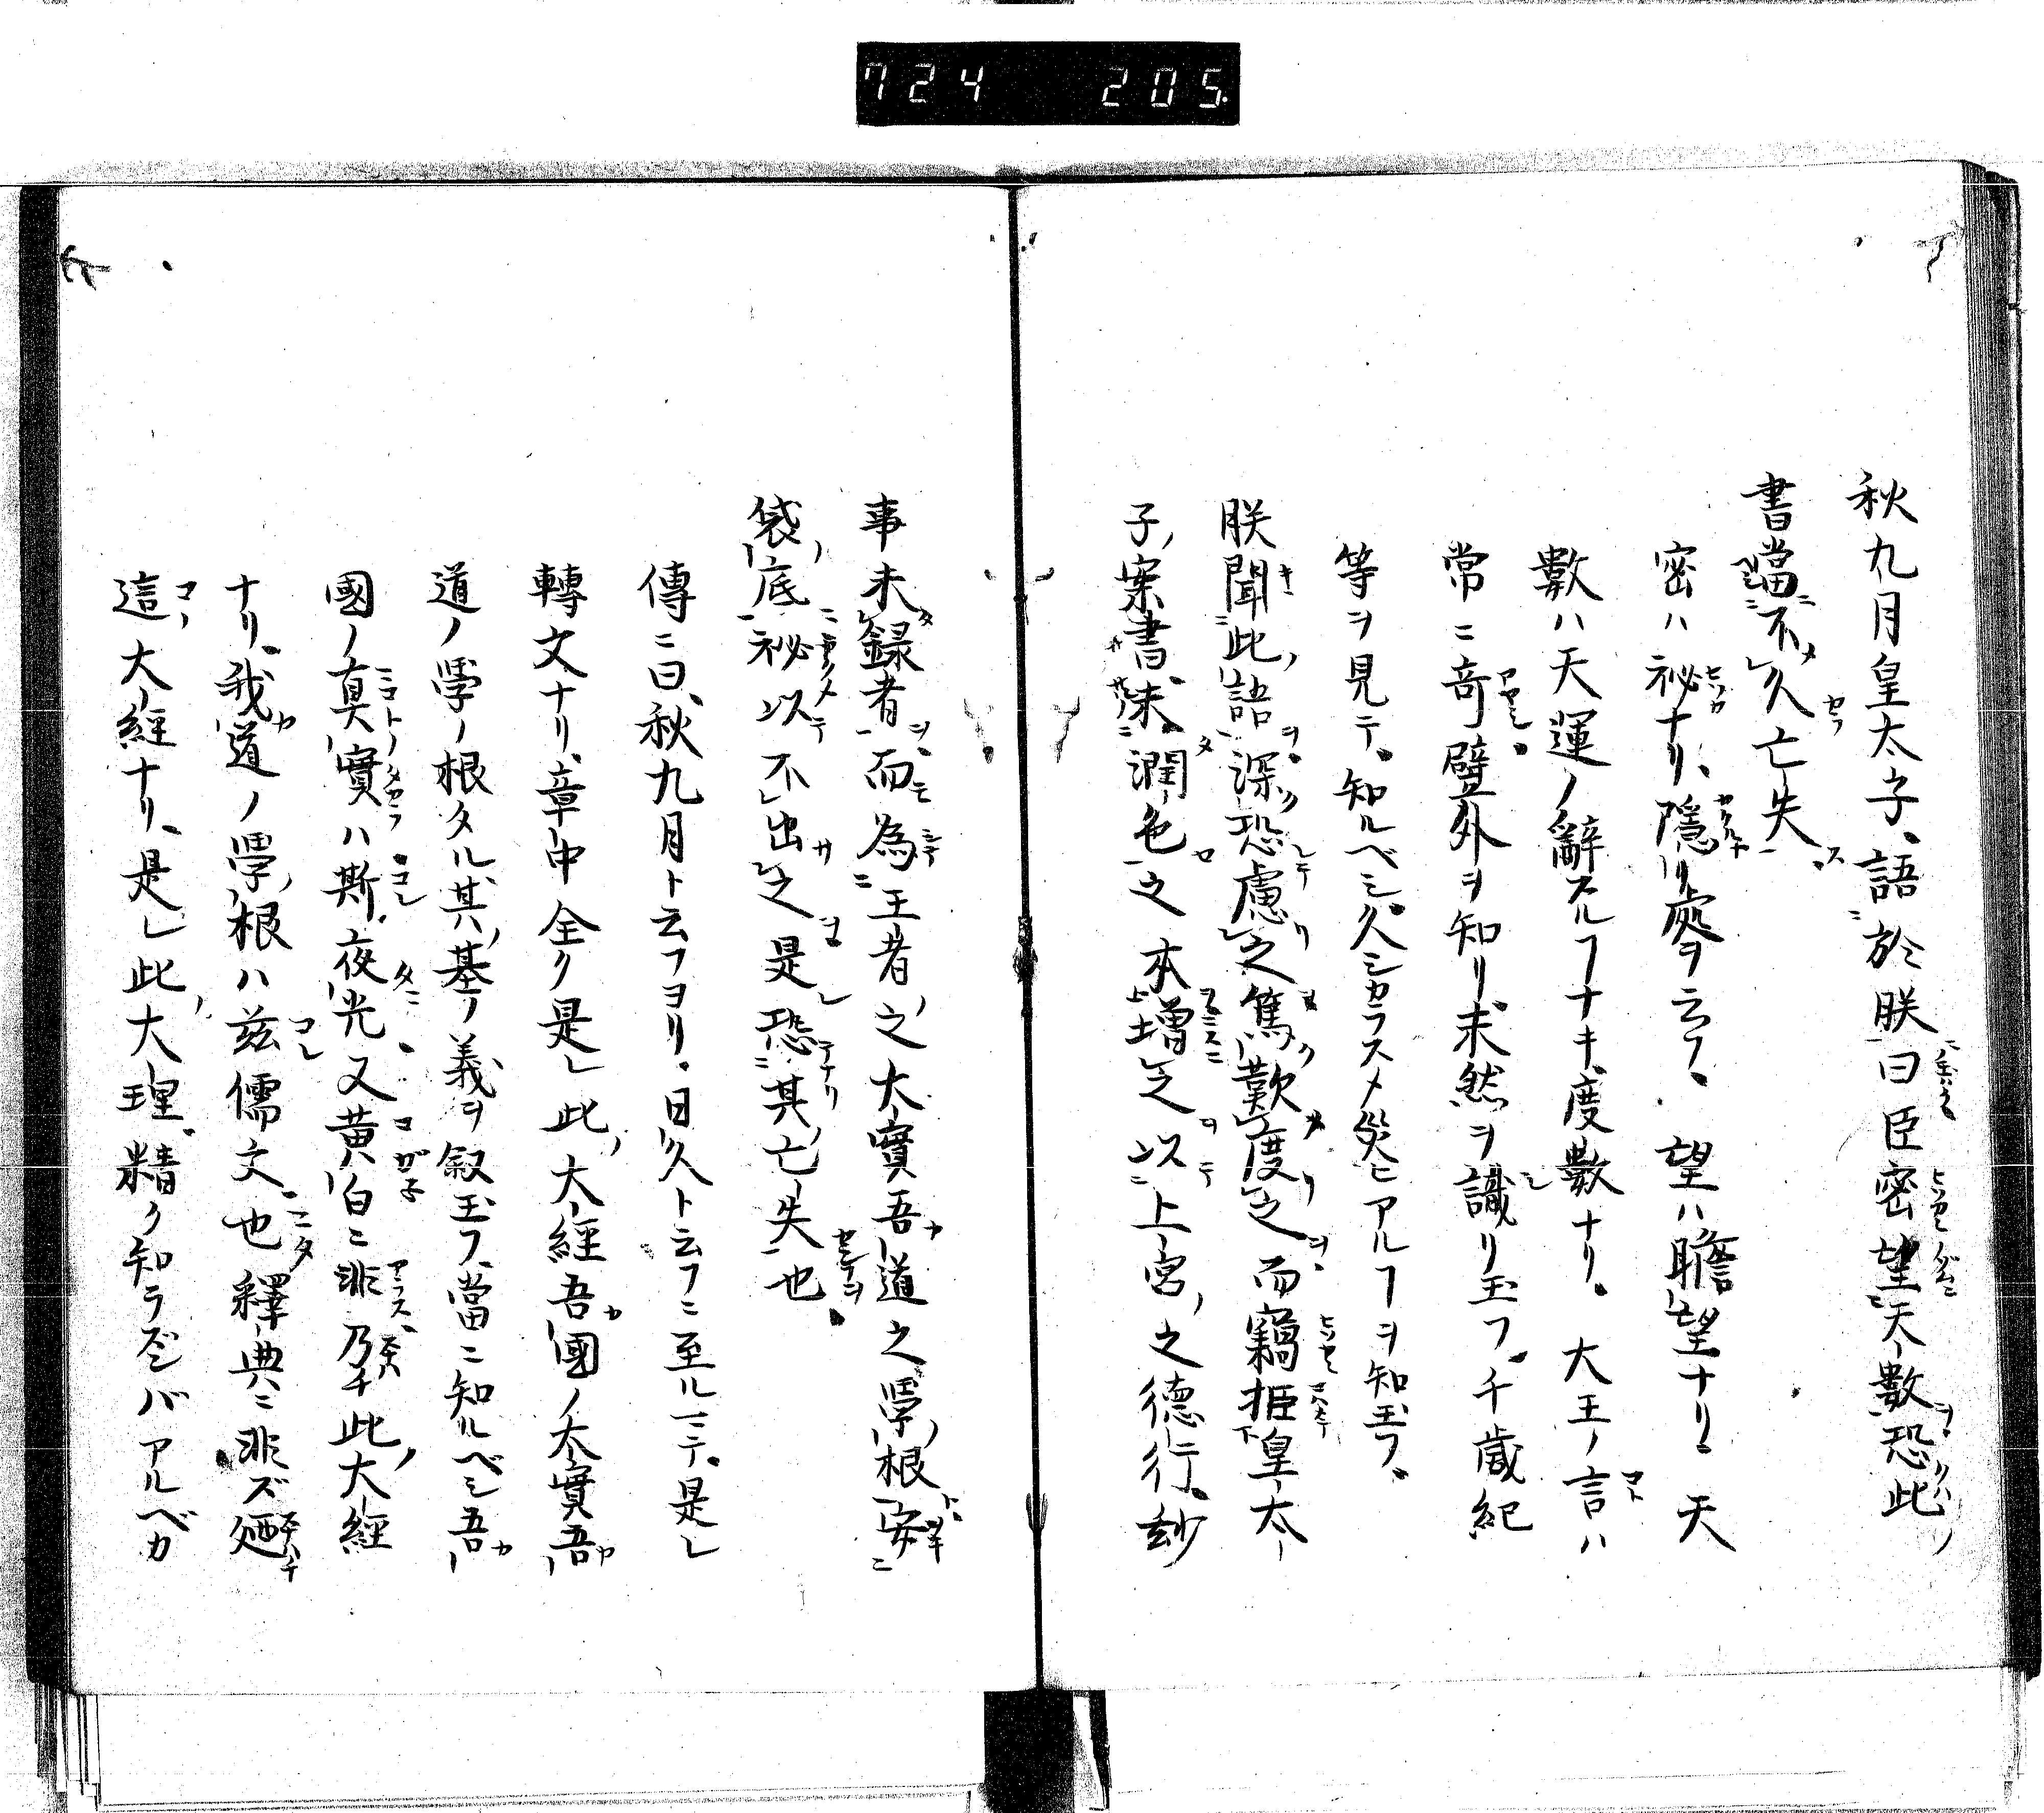 724 205
秋九月皇太子語於朕曰臣密望天數恐此
書當不久亡失
密ハ祕ナリ隱リ處ヲ云フ望ハ瞻望ナリ天
數ハ天運ノ辭スルヿナキ度數ナリ大王ノ言ハ
常ニ奇譬外ヲ知リ未然ヲ識リ玉フ千歲紀
等ヲ見テ知ルベシ久シカラスメ災ヒアルヿヲ知玉フ
朕聞此語深恐慮之篤歎度之而竊拒皇太
子案書未潤色之本增之以上宮之德行
事未錄者而為王者之大寶吾道之學根安
袋底祕以不出之是恐其亡失也
傳ニ曰秋九月ト云フヨリ日久ト云フニ至ルニテ是レ
轉文ナリ章中全ク是レ此大經吾國ノ太寶吾
道ノ學ノ根タル其基ノ義ヲ叙玉フ當ニ知ルベシ吾
國ノ真寶ハ斯夜光又黃白ニ非乃チ此大經
ナリ我道ノ學根ハ兹儒文也釋典ニ非ズ廼
這大經ナリ是レ此大理精ク知ラズンバアルベカ